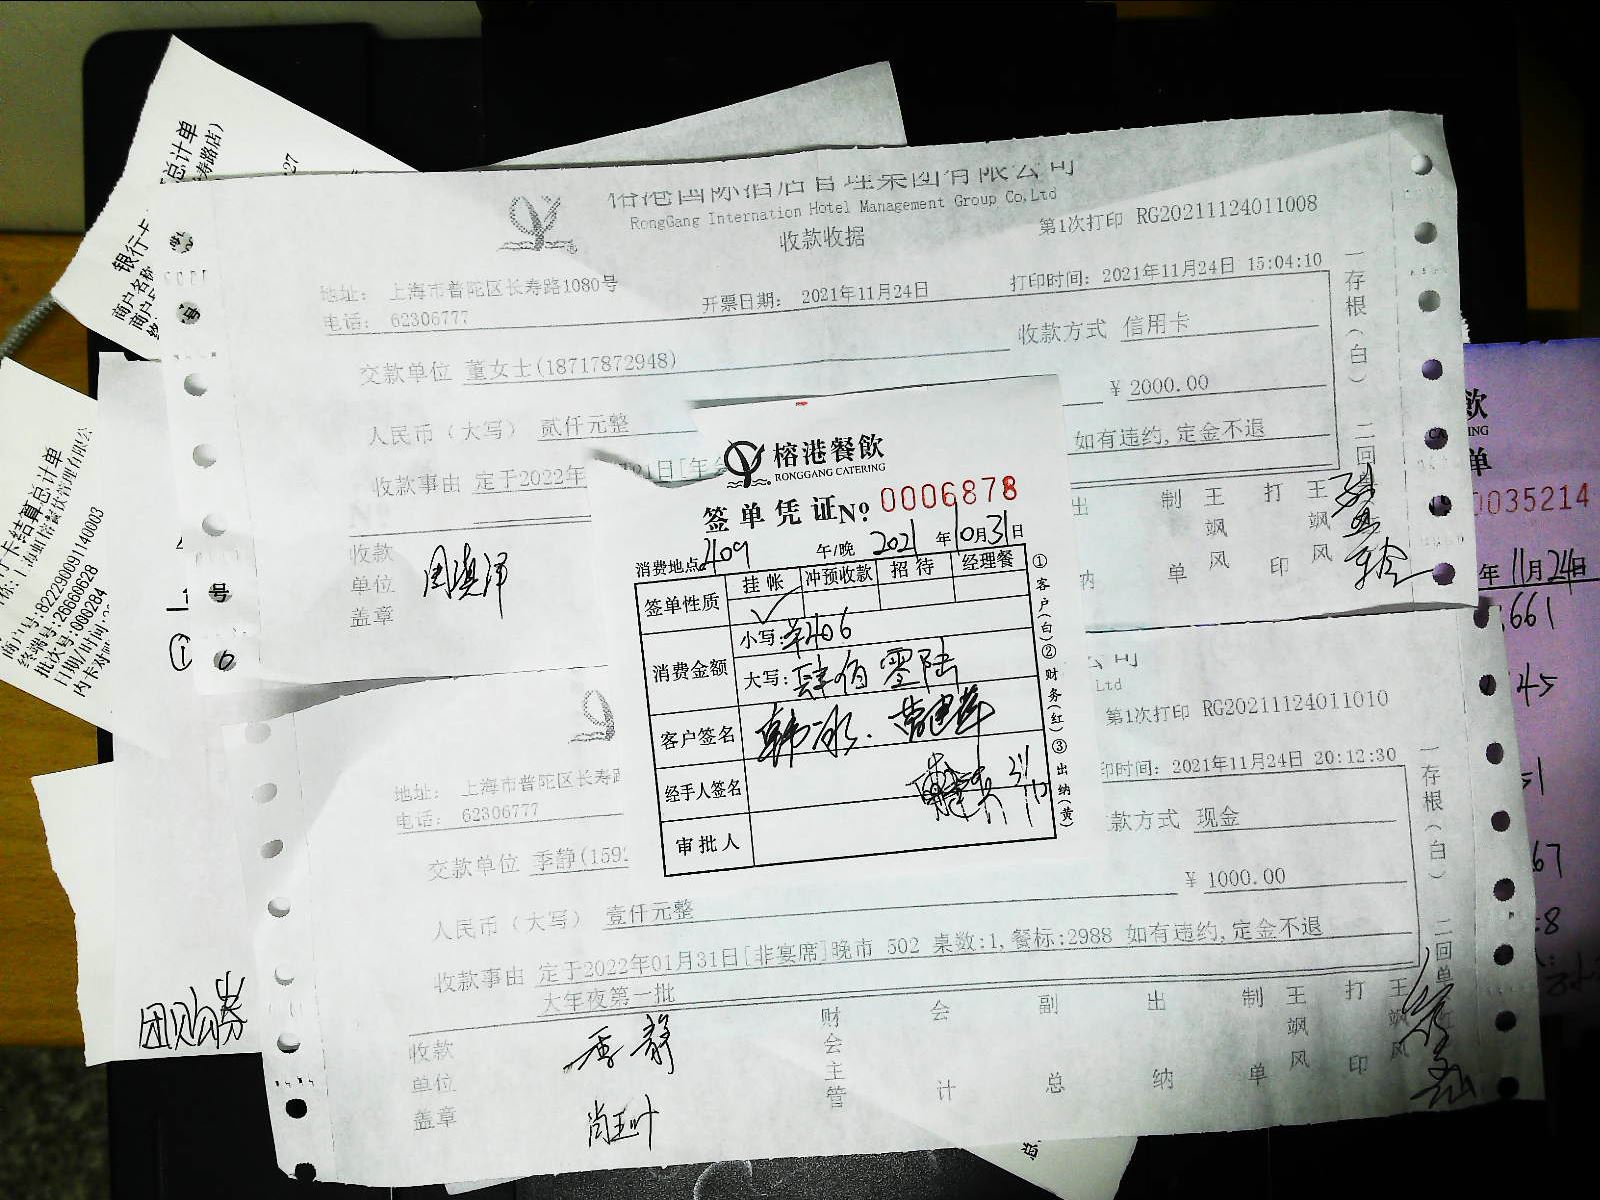 总计单
寿路店)
-27
银行卡
商户名称
商户
榕港国际酒店管理集团有限公司
RongGang Internation Hotel Management Group Co,Ltd
收款收据
第1次打印 RG20211124011008
地址: 上海市普陀区长寿路1080号
电话: 62306777
开票日期: 2021年11月24日
打印时间: 2021年11月24日 15:04:10
收款方式 信用卡
交款单位 董女士(18717872948)
¥ 2000.00
人民币(大写) 贰仟元整
收款事由 定于2022年
01日[年
如有违约,定金不退
一存根(白)
二回
收款单位盖章
周滇洋
出纳
制单
王飒风
打印
王飒风
榕港餐飲
RONGGANG CATERING
签单凭证 No. 0006878
消费地点 2109 午/晚 2021年10月31日
签单性质 挂帐 冲预收款 招待 经理餐
✓
消费金额
小写: 羊406
大写: 肆佰零陆
客户签名
经手人签名 31/10
审批人
①客户(白)②财务(红)③出纳(黄)
Ltd
第1次打印 RG20211124011010
地址: 上海市普陀区长寿路
电话: 62306777
印时间: 2021年11月24日 20:12:30
款方式 现金
交款单位 季静(159
¥ 1000.00
人民币(大写) 壹仟元整
收款事由 定于2022年01月31日[非宴席]晚市 502 桌数:1,餐标:2988 如有违约,定金不退
大年夜第一批
一存根(白)
二回单
收款单位盖章
季静
尚玉叶
财会主管
会计
副总
出纳
制单
王飒风
打印
王飒风
卡结算总计单
上海虹榕餐饮管理有限公
商户号:822290091140003
终端号:26660628
批次号:000284
日期/时间:
内卡对
号
团购券
飲
ING
单
0035214
年11月24日
661
45
51
67
:8